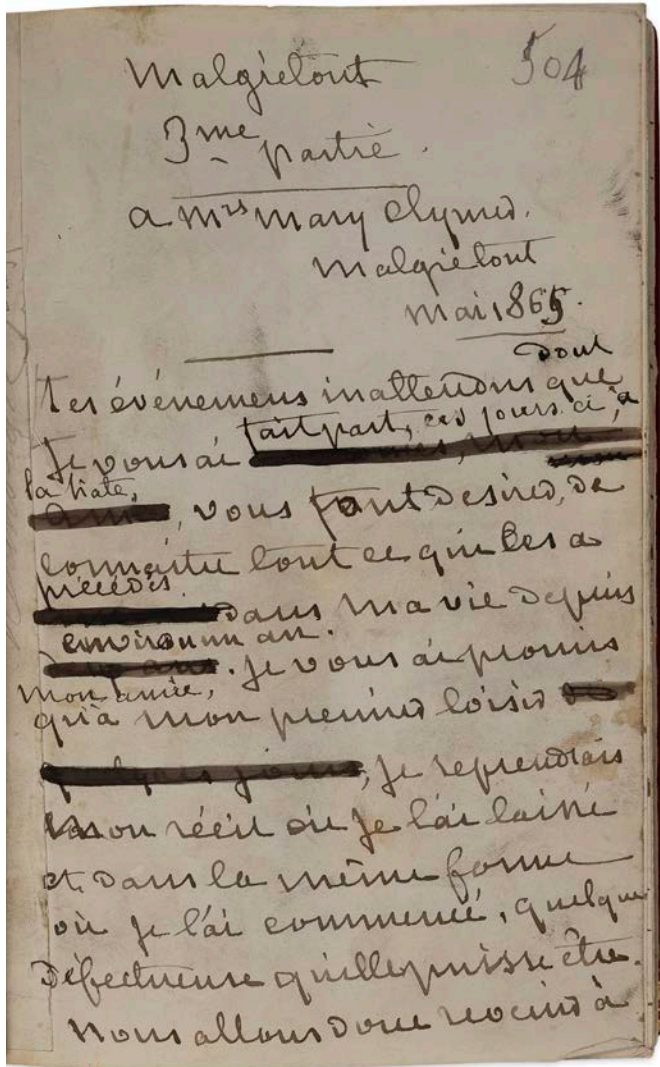 Malgrétout
504
3me partie.
a Mrs Mary Clymer.
Malgrétout
mai 1865.
dont
Les événemens inattendus que
fait part, ces jours ci, à
Je vous ai
la hate,
, vous font desirer, de
connaitre tout ce qui les a
précédés
dans ma vie depuis
environ un an.
. Je vous ai promis
mon amie,
qu'à mon premier loisir
, je reprendrais
mon récit où je l'ai laissé
et dans la même forme
où je l'ai commencé, quelque
défectueuse qu'elle puisse être.
Nous allons donc revenir à